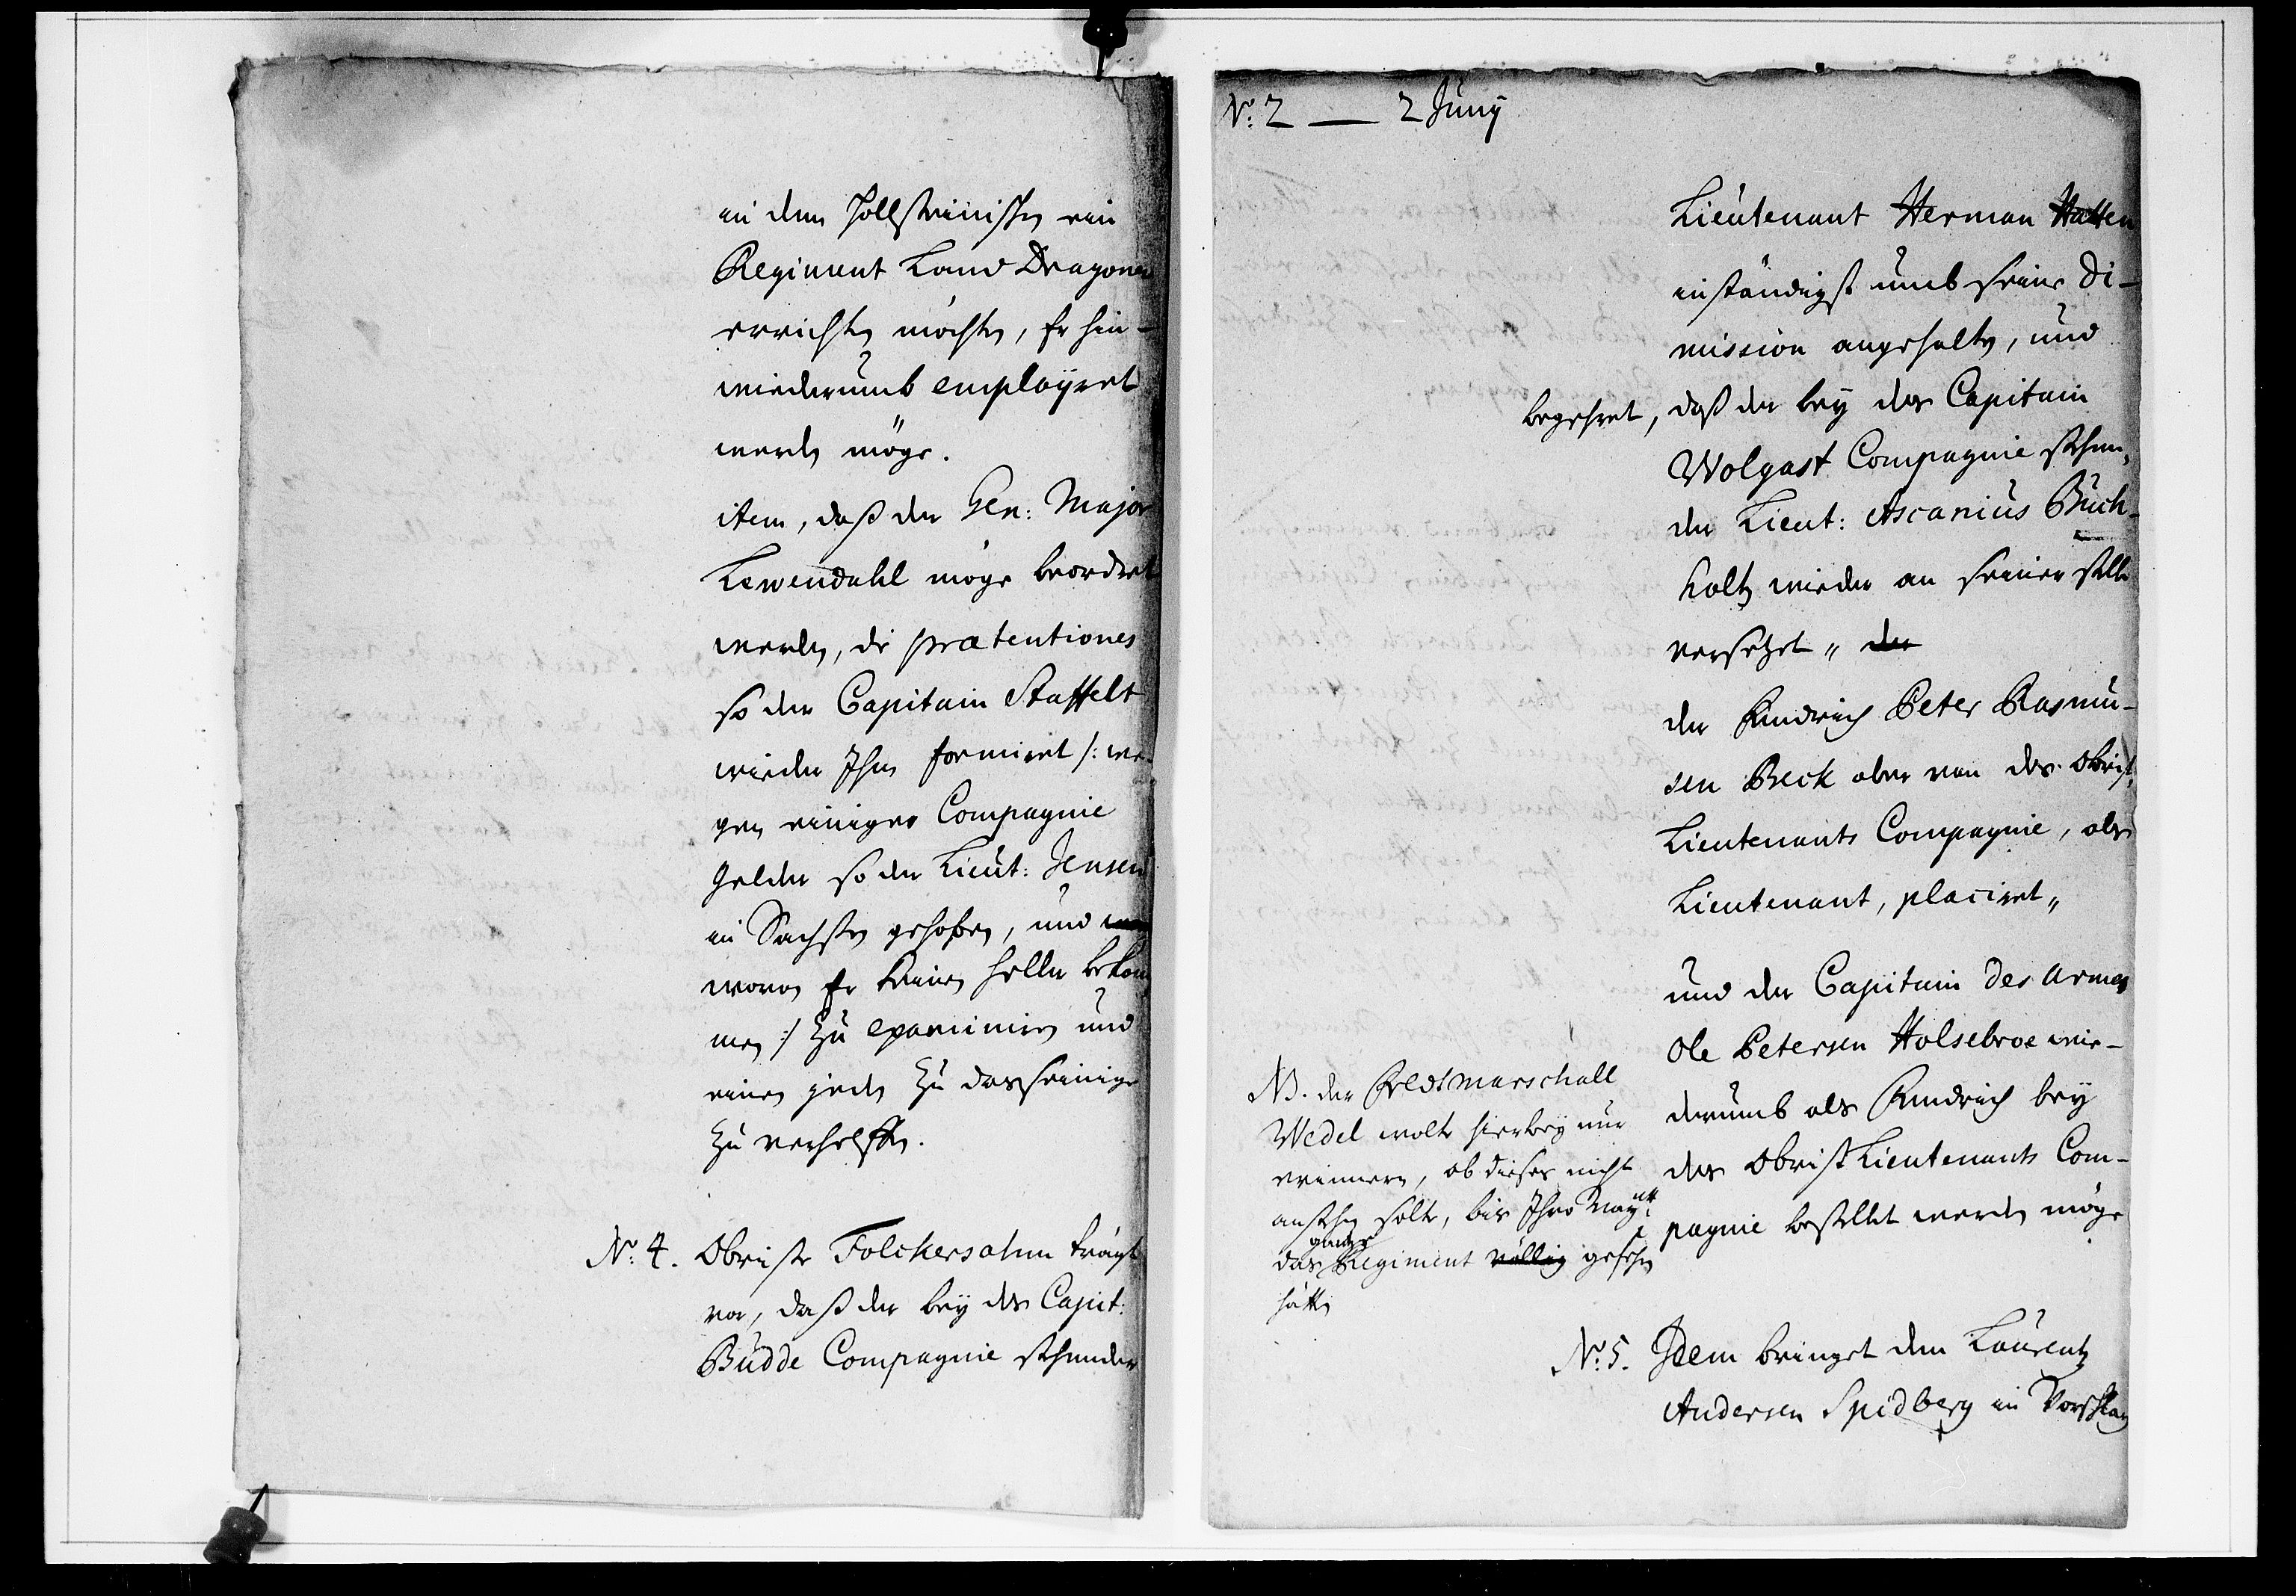 in dem Hollsteinischen ein
Regiment Land Dragoner
errichten möchten, Er hin-
wiederumb employret
werden möge.
item, daß der Gen: Major
Lewendahl möge beordret
werden, die prætentiones
so der Capitain Staffelt
wieder Ihm formiret /: we-
gen einiger Compagnie
gelder so der Lieut: Jensen
in Sachsen gehoben, und
wovon Er keinen heller bekom
men :/ zu examiniren und
einen jeden zu das seinige
zu verhelffen.
No: 4. Obriste Folckersahm trägt
vor, daß der bey des Capit:
Budde Compagnie stehender
No: 2 — 2 Juny
Lieutenant Herman Hatten
inständigst umb seine Di-
mission angehalten, und
begehret, daß der bey des Capitain
Wolgast Compagnie stehen-
der Lieut: Ascanius Buch-
holtz wieder an seiner stelle
versetzet „ der
der Fendrich Peter Rasmu-
sen Beck aber von des Obrist
Lieutenants Compagnie, als
Lieutenant, placiret „
und der Capitain des armes
Ole Petersen Holsebroe wie-
derumb als Fendrich bey
des Obrist Lieutenants Com-
pagnie bestellet werden möge
NB. der Feldtmarschall
Wedel wolte hierbey nur
erinnern, ob dieses nicht
anstehen solte, bis Ihro Maytt:
gantze
das Regiment völlig gesehen
hätten
No: 5. Idem bringet den Laurentz
Andersen Spidberg in Vorschlag